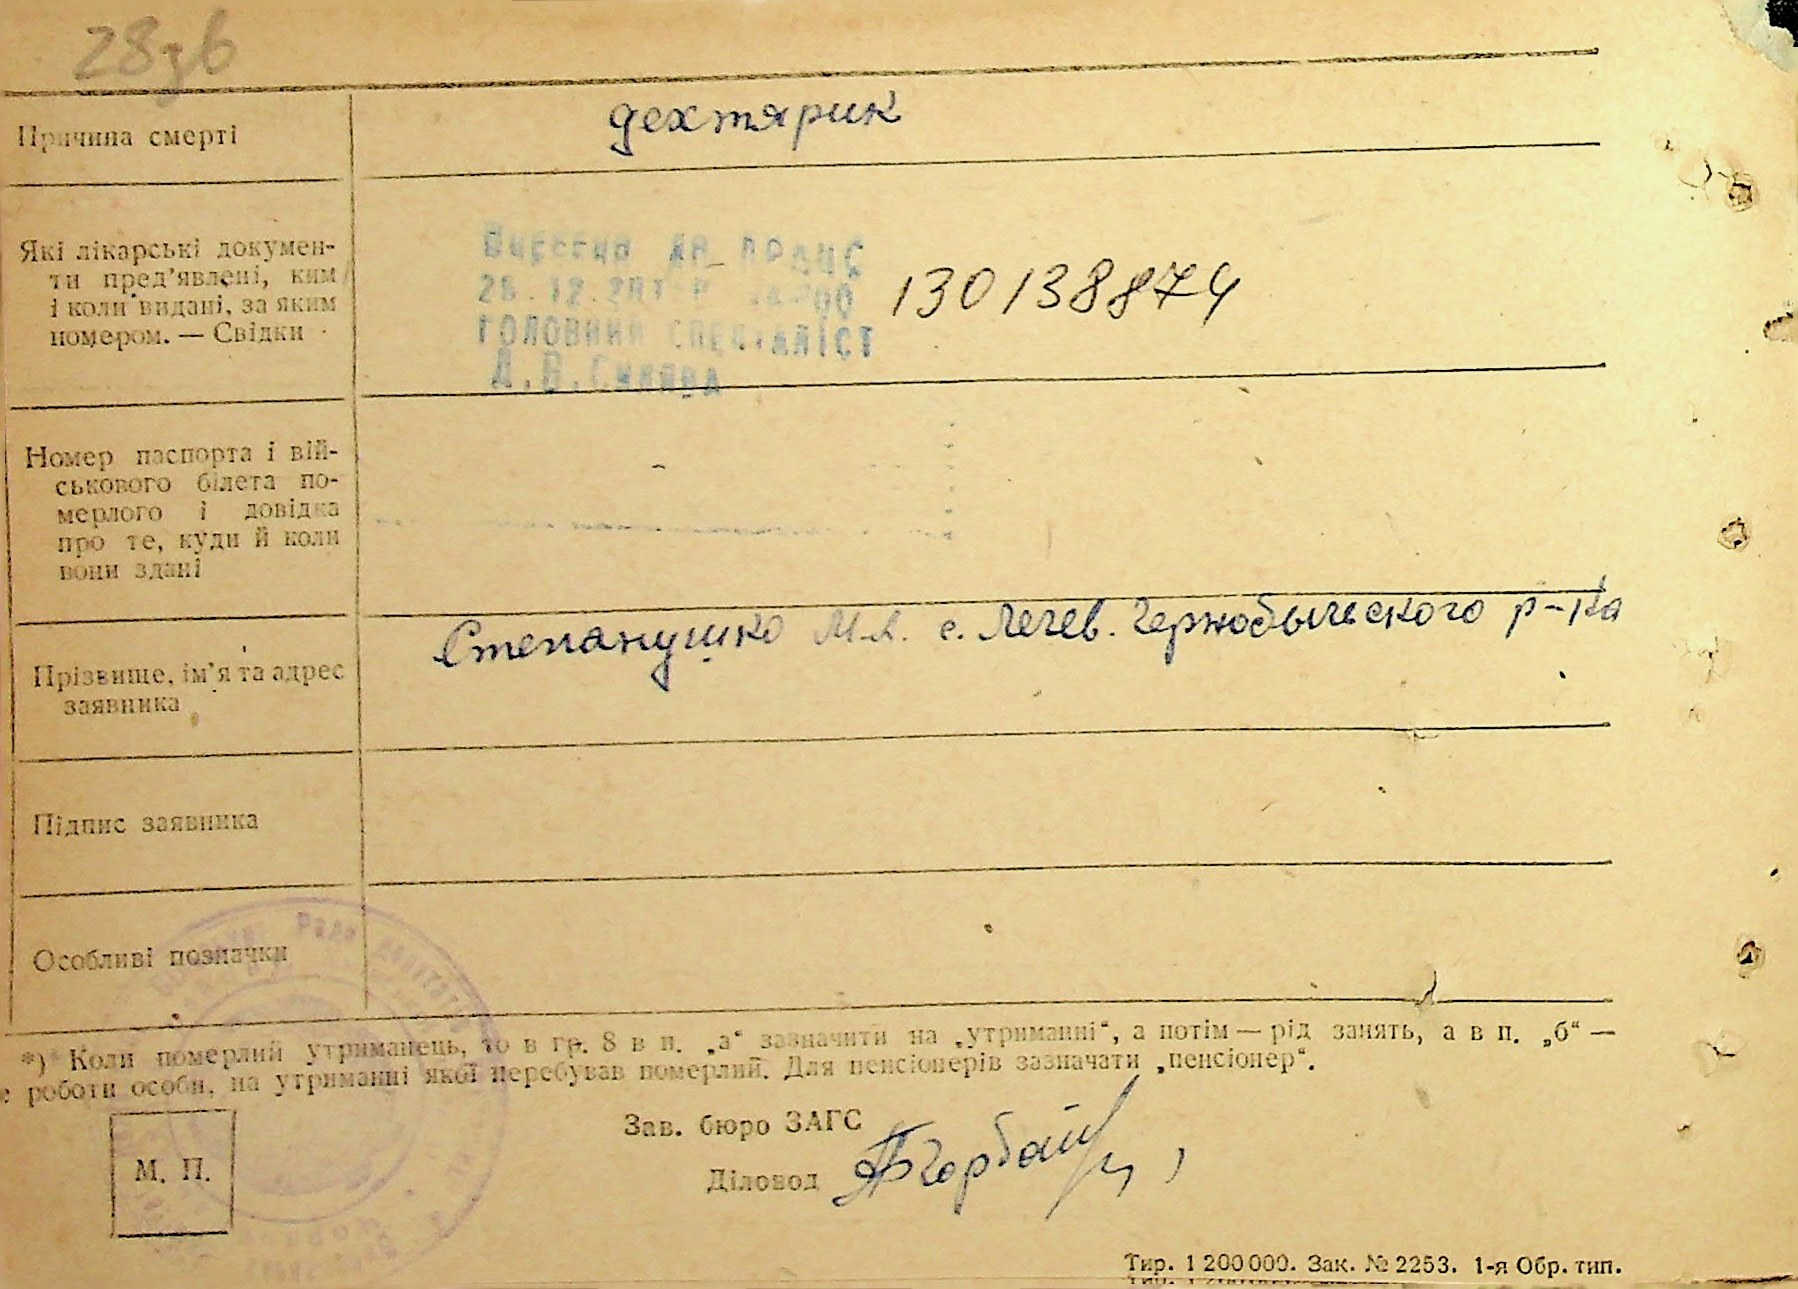 28зв
Причина смерті
дехтярик
Які лікарські докумен-
ти пред'явлені, ким
і коли видані, за яким
номером. — Свідки
Внесено до ДРАЦС
ГОЛОВНИЙ СПЕЦІАЛІСТ
130138874
Номер паспорта і вій-
ськового білета по-
мерлого і довідка
про те, куди й коли
вони здані
Степанушко М.А. с. Лелев. Чернобыльского р-на
Прізвище, ім'я та адрес
заявника
Підпис заявника
Особливі позначки
*) Коли померлий утриманець, то в гр. 8 в п. „а“ зазначити на „утриманні“, а потім — рід занять, а в п. „б“ —
е роботи особи, на утриманні якої перебував померлий. Для пенсіонерів зазначати „пенсіонер“.
Зав. бюро ЗАГС
М. П.
Діловод
Тир. 1 200 000. Зак. № 2253. 1-я Обр. тип.